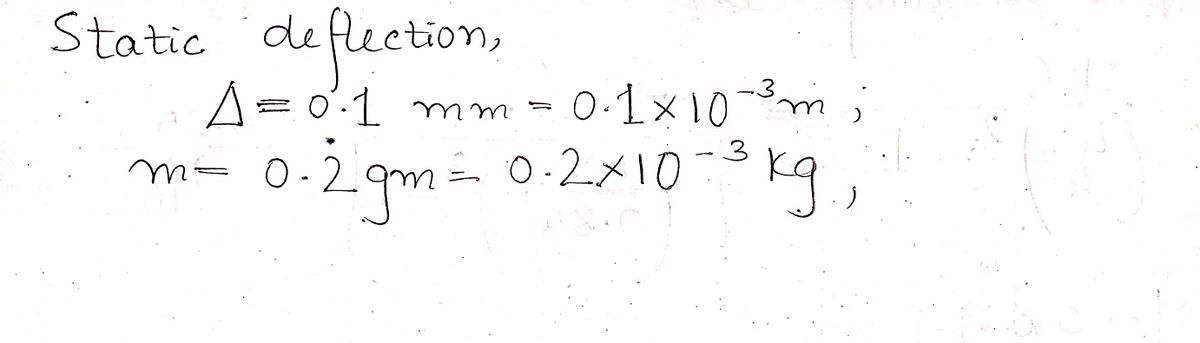 Static deflection,
Δ = 0.1 mm = 0.1 × 10⁻³ m ;
m = 0.2 gm = 0.2 × 10⁻³ kg ,